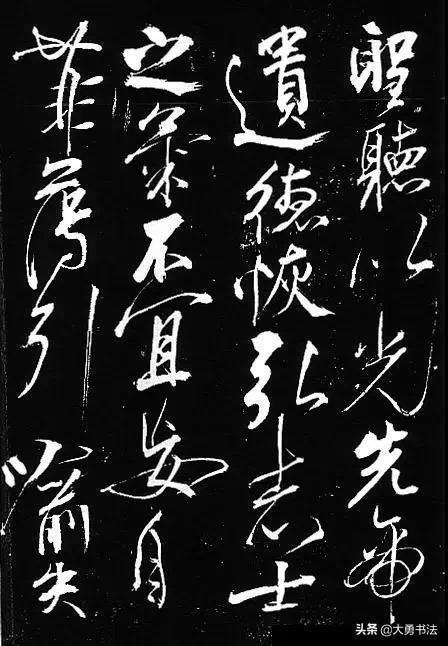 聖聽以光先帝
遺德恢弘志士
之氣不宜妄自
菲薄引喻失
头条 @大勇书法